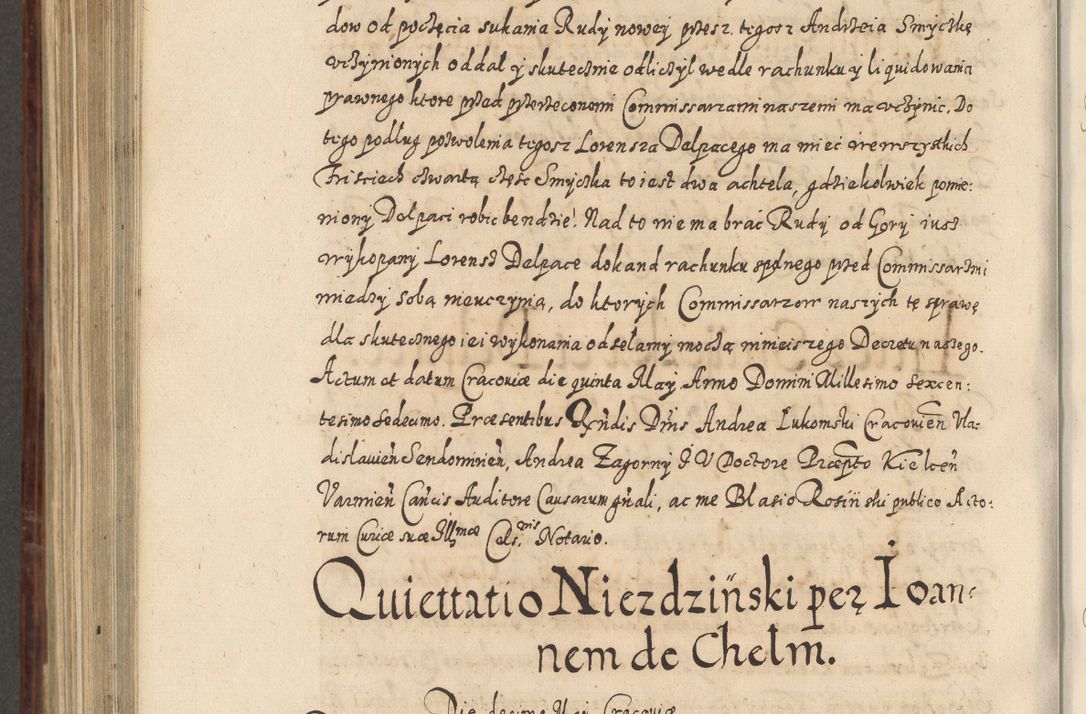 dow od poczęcia sukania Rudy nowey przesz tegosz Andrzeia Smyczkę
vczynionych oddal y skutecznie odliczyl wedle rachunku y liquidowania
prawnego ktore przed przerzeczonemi Commissarzami naszemi ma vczynic. Do
tego podług pozwolenia tegosz Lorensza Dalpacego ma mieć we wszystkich
Triściech czwartą częśc Smyczka to iest dwa achtela, gdziekolwiek pomie:
niony Delpaci robic bendzie! Nad to nie ma brać Rudy od Gory iusz
wykopany Lorensz Delpace dokand rachunku spolnego przed Commissarzmi
miedzy sobą nieuczynią, do ktorych Commissarzow naszych tę sprawę
dla skutecznego iei wykonania odsełamy moczą ninieiszego Decretu naszego.
Actum et datum Cracoviæ die quinta May, Anno Domini Millesimo sexcen:
tesimo sedecimo. Præsentibus Rñdis Dñis Andrea Lukomski Cracovieñ Vla:
dislavieñ Sendomirieñ, Andrea Zagorny I V Doctore Præpto Kielceñ
Varmieñ Cañcis Auditore Causarum gñali, ac me Blasio Rosiński publico Acto:
rum Curiæ suæ Illmæ Cels.nis Notario.
Quiettatio Niezdziński per Ioan:
nem de Chelm.
Die decima May Cracoviæ